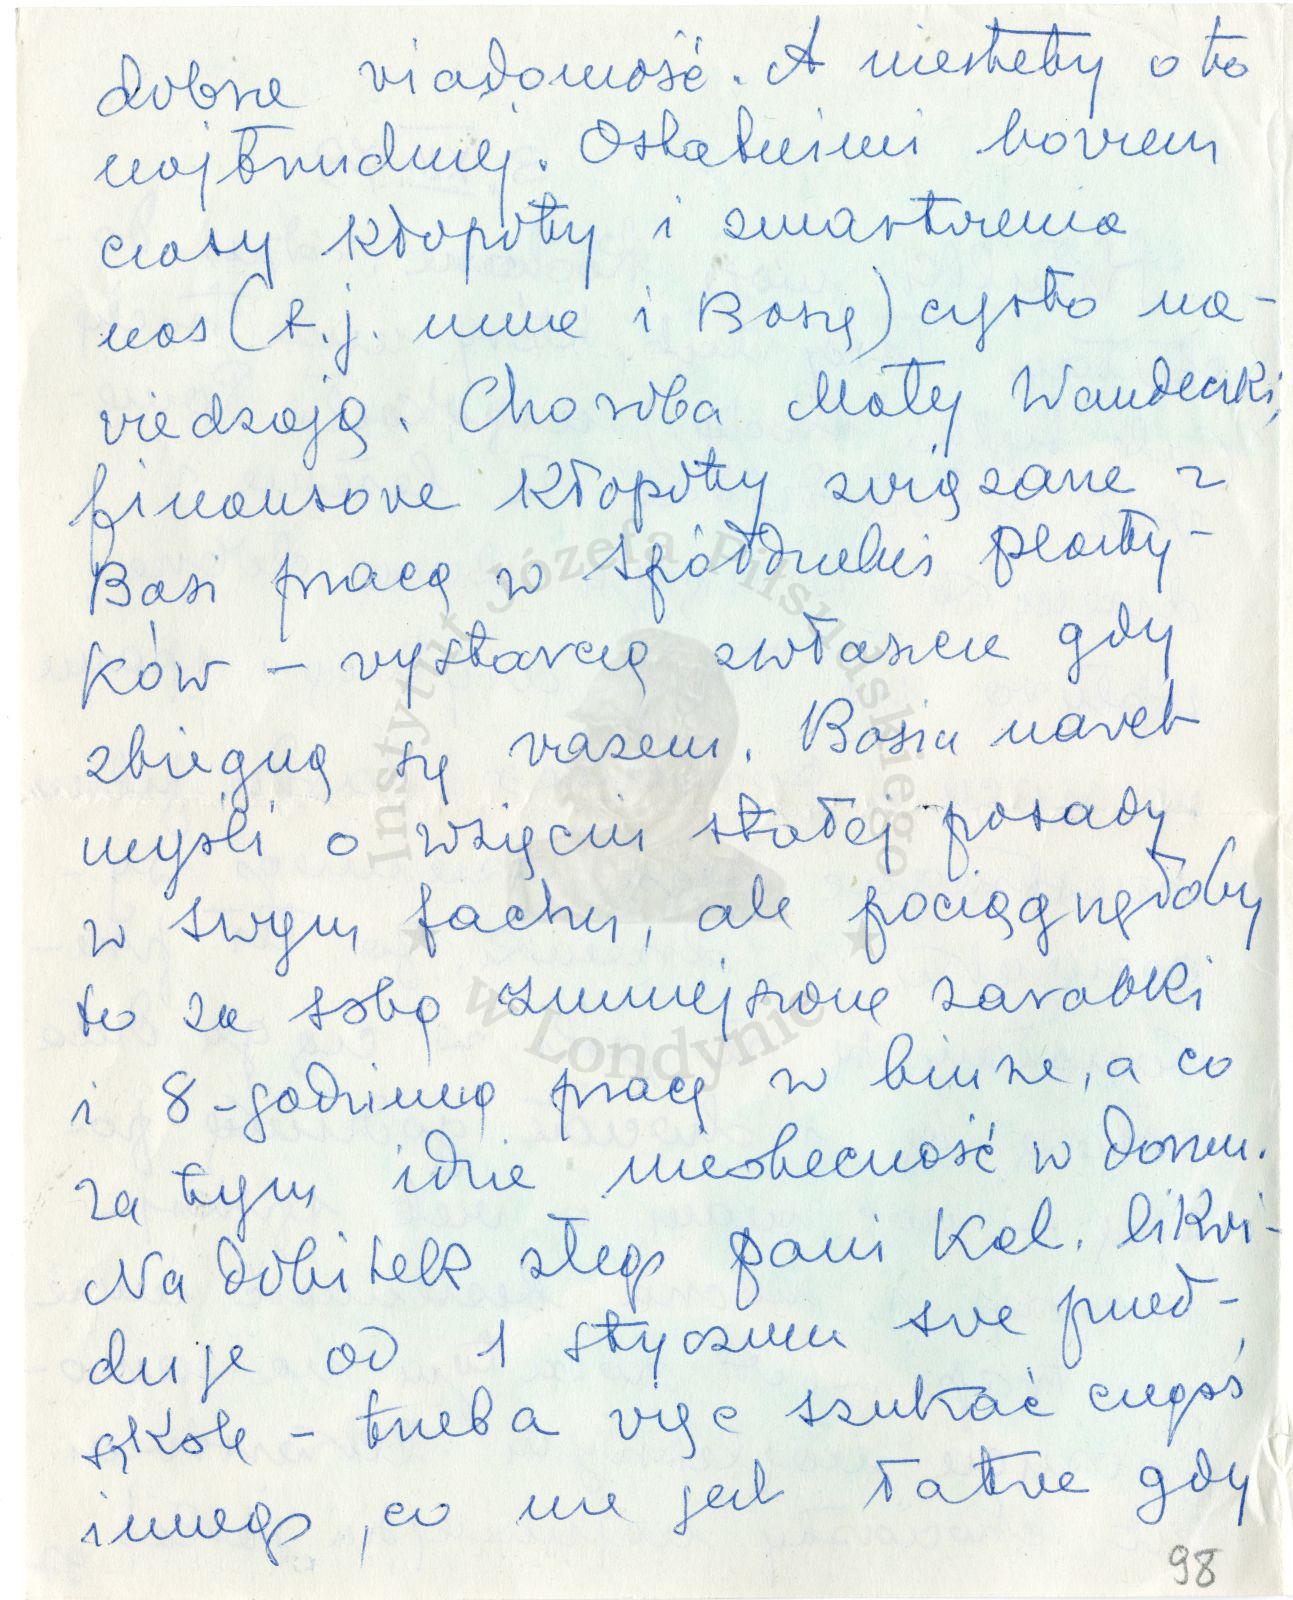 dobre wiadomość. A niestety o to
najtrudniej. Ostatnimi bowiem
czasy kłopoty i zmartwienia
nas (t.j. mnie i Basię) często na-
wiedzają. Choroba Małej Wandeczki,
finansowe kłopoty związane z
Basi pracą w Spółdzielni plasty-
ków – wystarczą zwłaszcza gdy
zbiegną się razem. Basia nawet
myśli o wzięciu stałej posady
w swym fachu, ale pociągnęłoby
to za sobą zmniejszone zarobki
i 8-godzinną pracę w biurze, a co
za tym idzie nieobecność w domu.
Na dobitek złego pani Kal. likwi-
duje od 1 stycznia swe przed-
szkole – trzeba więc szukać czegoś
innego, co nie jest łatwe gdy
98
Instytut Józefa Piłsudskiego
w Londynie